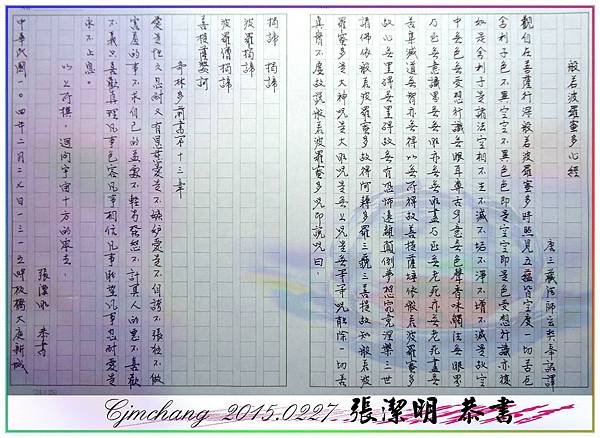 般若波羅蜜多心經
唐三藏法師玄奘奉詔譯
觀自在菩薩行深般若波羅蜜多時照見五蘊皆空度一切苦厄
舍利子色不異空空不異色色即是空空即是色受想行識亦復
如是舍利子是諸法空相不生不滅不垢不淨不增不減是故空
中無色無受想行識無眼耳鼻舌身意無色聲香味觸法無眼界
乃至無意識界無無明亦無無明盡乃至無老死亦無老死盡無
苦集滅道無智亦無得以無所得故菩提薩埵依般若波羅蜜多
故心無罣礙無罣礙故無有恐怖遠離顛倒夢想究竟涅槃三世
諸佛依般若波羅蜜多故得阿耨多羅三藐三菩提故知般若波
羅蜜多是大神咒是大明咒是無上咒是無等等咒能除一切苦
真實不虛故說般若波羅蜜多咒即說咒曰
揭諦 揭諦
波羅揭諦
波羅僧揭諦
菩提薩婆訶
哥林多前書第十三章
愛是恆久忍耐又有恩慈愛是不嫉妒愛是不自誇不張狂不做
害羞的事不求自己的益處不輕易發怒不計算人的惡不喜歡
不義只喜歡真理凡事包容凡事相信凡事盼望凡事忍耐愛是
永不止息。
以上所撰,迴向宇宙十方的眾生。
張潔明 恭書
中華民國一〇四年二月二七日一三一五時 大唐新城
Cjmchang 2015.0227 張潔明 恭書